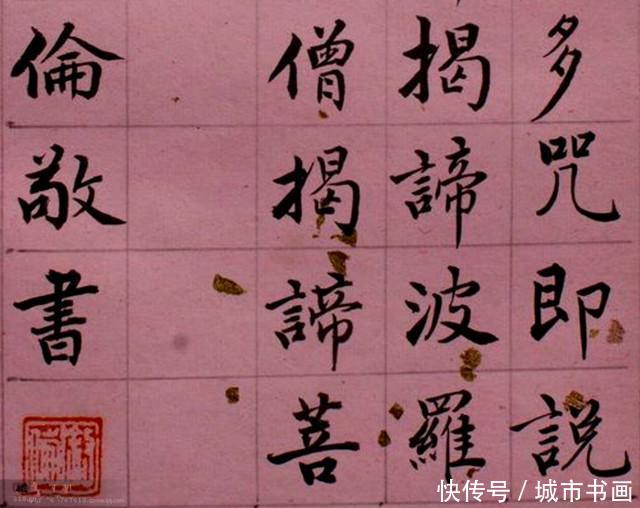 多咒即說
揭諦波羅
僧揭諦菩
倫敬書
快传号 / 城市书画